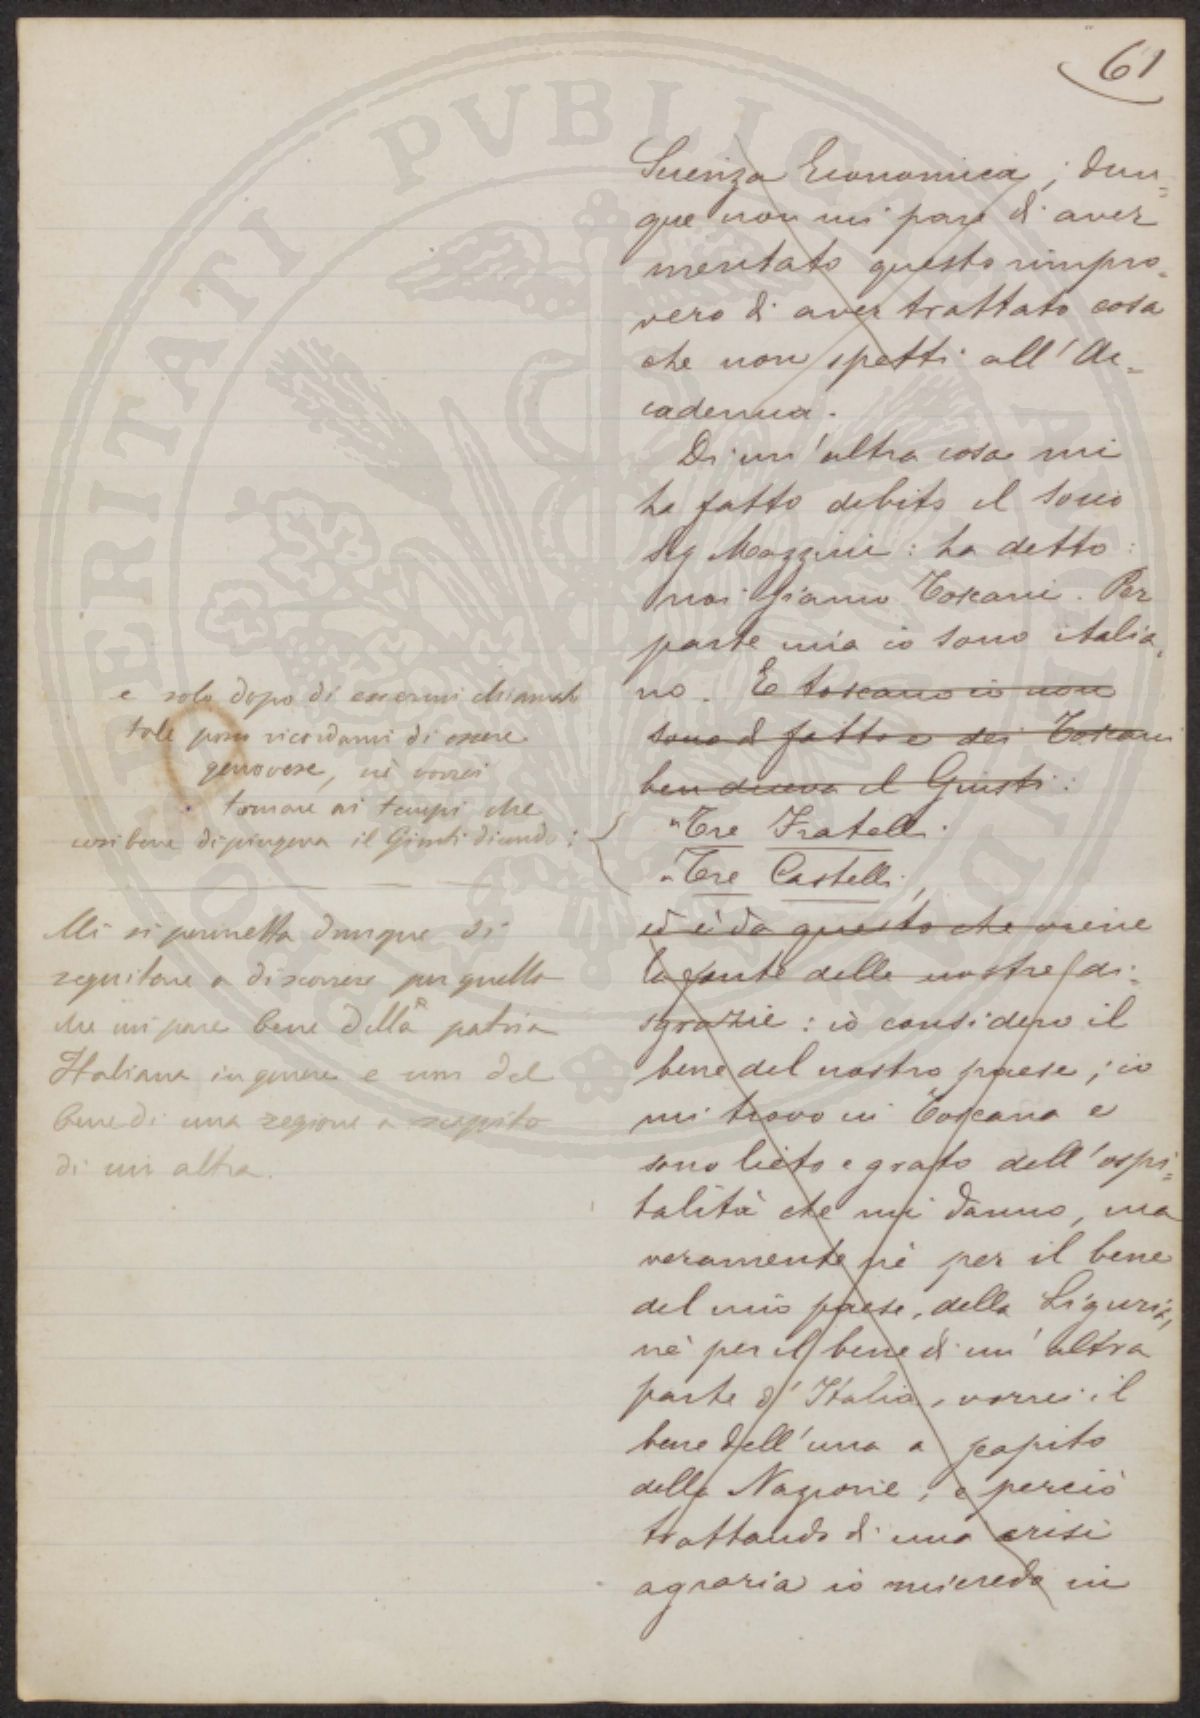 61
Scienza Economica; dun=
que non mi pare di aver
meritato questo rimpro=
vero di aver trattato cosa
che non spetti all'Ac=
cademia.
Di un'altra cosa mi
ha fatto debito il Socio
Sig Mazzini: ha detto:
noi siamo Toscani. Per
parte mia io sono italia=
no. E toscano io non
sono di fatto e dei Toscani
ben diceva il Giusti:
"Tre Fratelli
"Tre Castelli,
ed è da questo che viene
la fonte delle nostre di=
sgrazie: io considero il
bene del nostro paese; io
mi trovo in Toscana e
sono lieto e grato dell'ospi=
talità che mi danno, ma
veramente nè per il bene
del mio paese, della Liguria,
nè per il bene di un'altra
parte d'Italia, vorrei il
bene dell'una a scapito
della Nazione; e perciò
trattando di una crisi
agraria io mi credo in
e solo dopo di essermi chiamato
tale posso ricordarmi di essere
genovese, nè vorrei
tornare ai tempi che
così bene dipingeva il Giusti dicendo:
Mi si permetta dunque di
seguitare a discorrere per quello
che mi pare bene della patria
Italiana in genere e non del
bene di una regione a scapito
di un altra.
PVBLICAE
PROSPERITATI